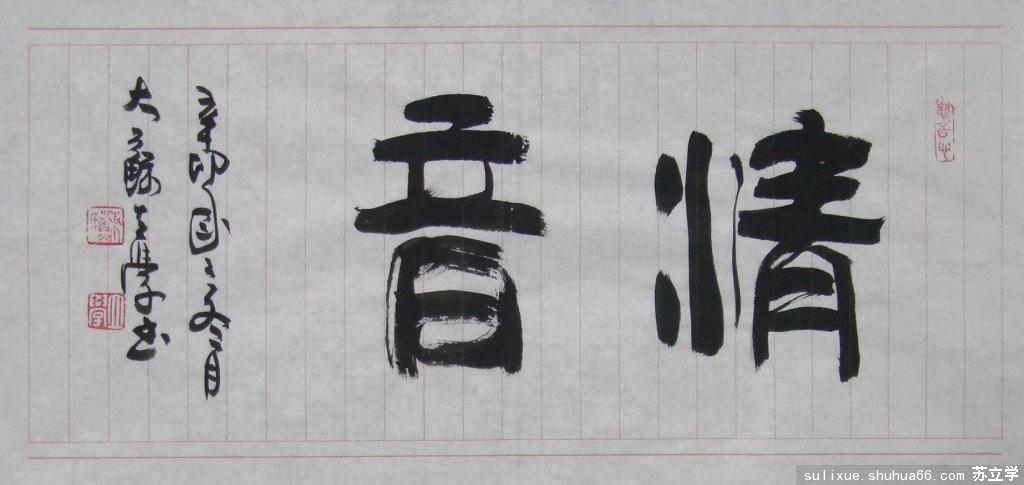 清音
辛卯之冬月
大蘇立學书
sulixue.shuhua66.com 苏立学